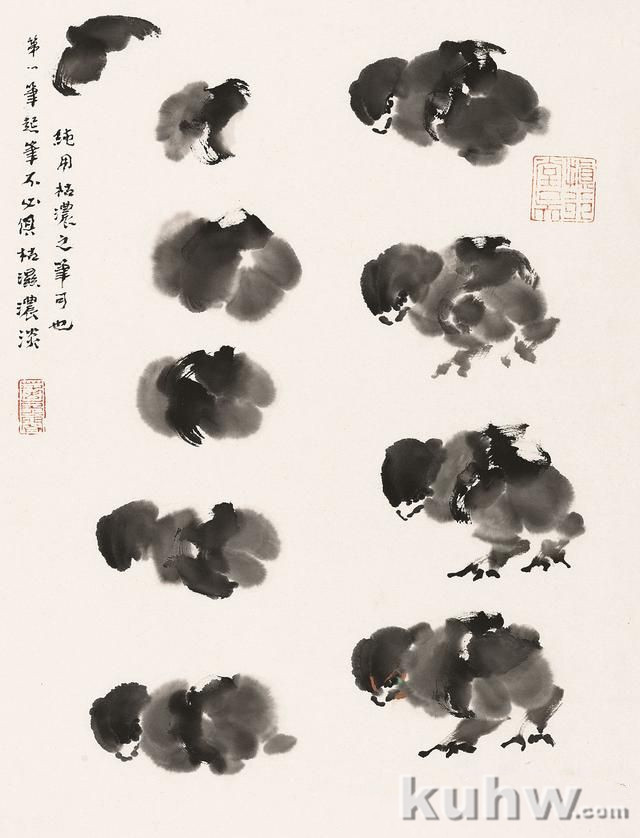 第一筆起筆不必俱枯濕濃淡
純用枯濃之筆可也
kuhw.com